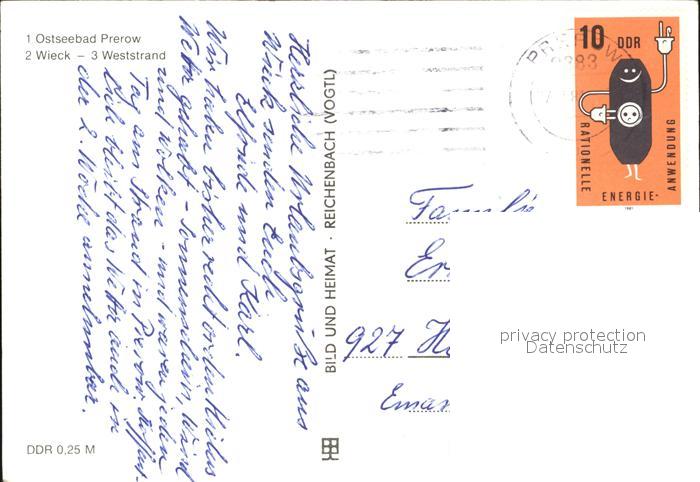 1 Ostseebad Prerow
2 Wieck – 3 Weststrand
Herzliche Urlaubsgrüße aus
Wieck senden Euch
Elfriede und Karl.
Wir haben bisher recht ordentliches
Wetter gehabt – Sonnenschein, Wind
und Wolken – und waren jeden
Tag am Strand in Prerow. Hoffent-
lich bleibt das Wetter auch in
der 2. Woche annehmbar.
DDR 0,25 M
BILD UND HEIMAT · REICHENBACH (VOGTL)
PREROW
2383
10 DDR
RATIONELLE
ENERGIE-
ANWENDUNG
1981
Familie
Er
927 H
privacy protection
Datenschutz